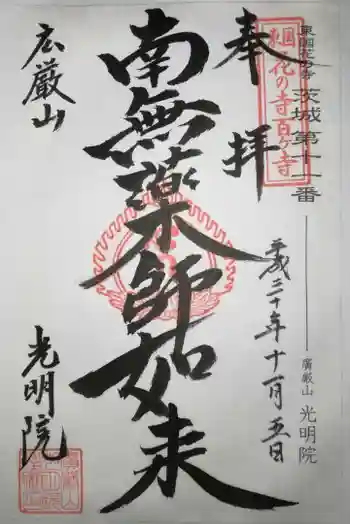 東国花の寺
茨城第十一番
廣厳山 光明院
東国花の寺百ヶ寺
奉拝
平成三十年十一月五日
南無薬師如来
広厳山
光明院